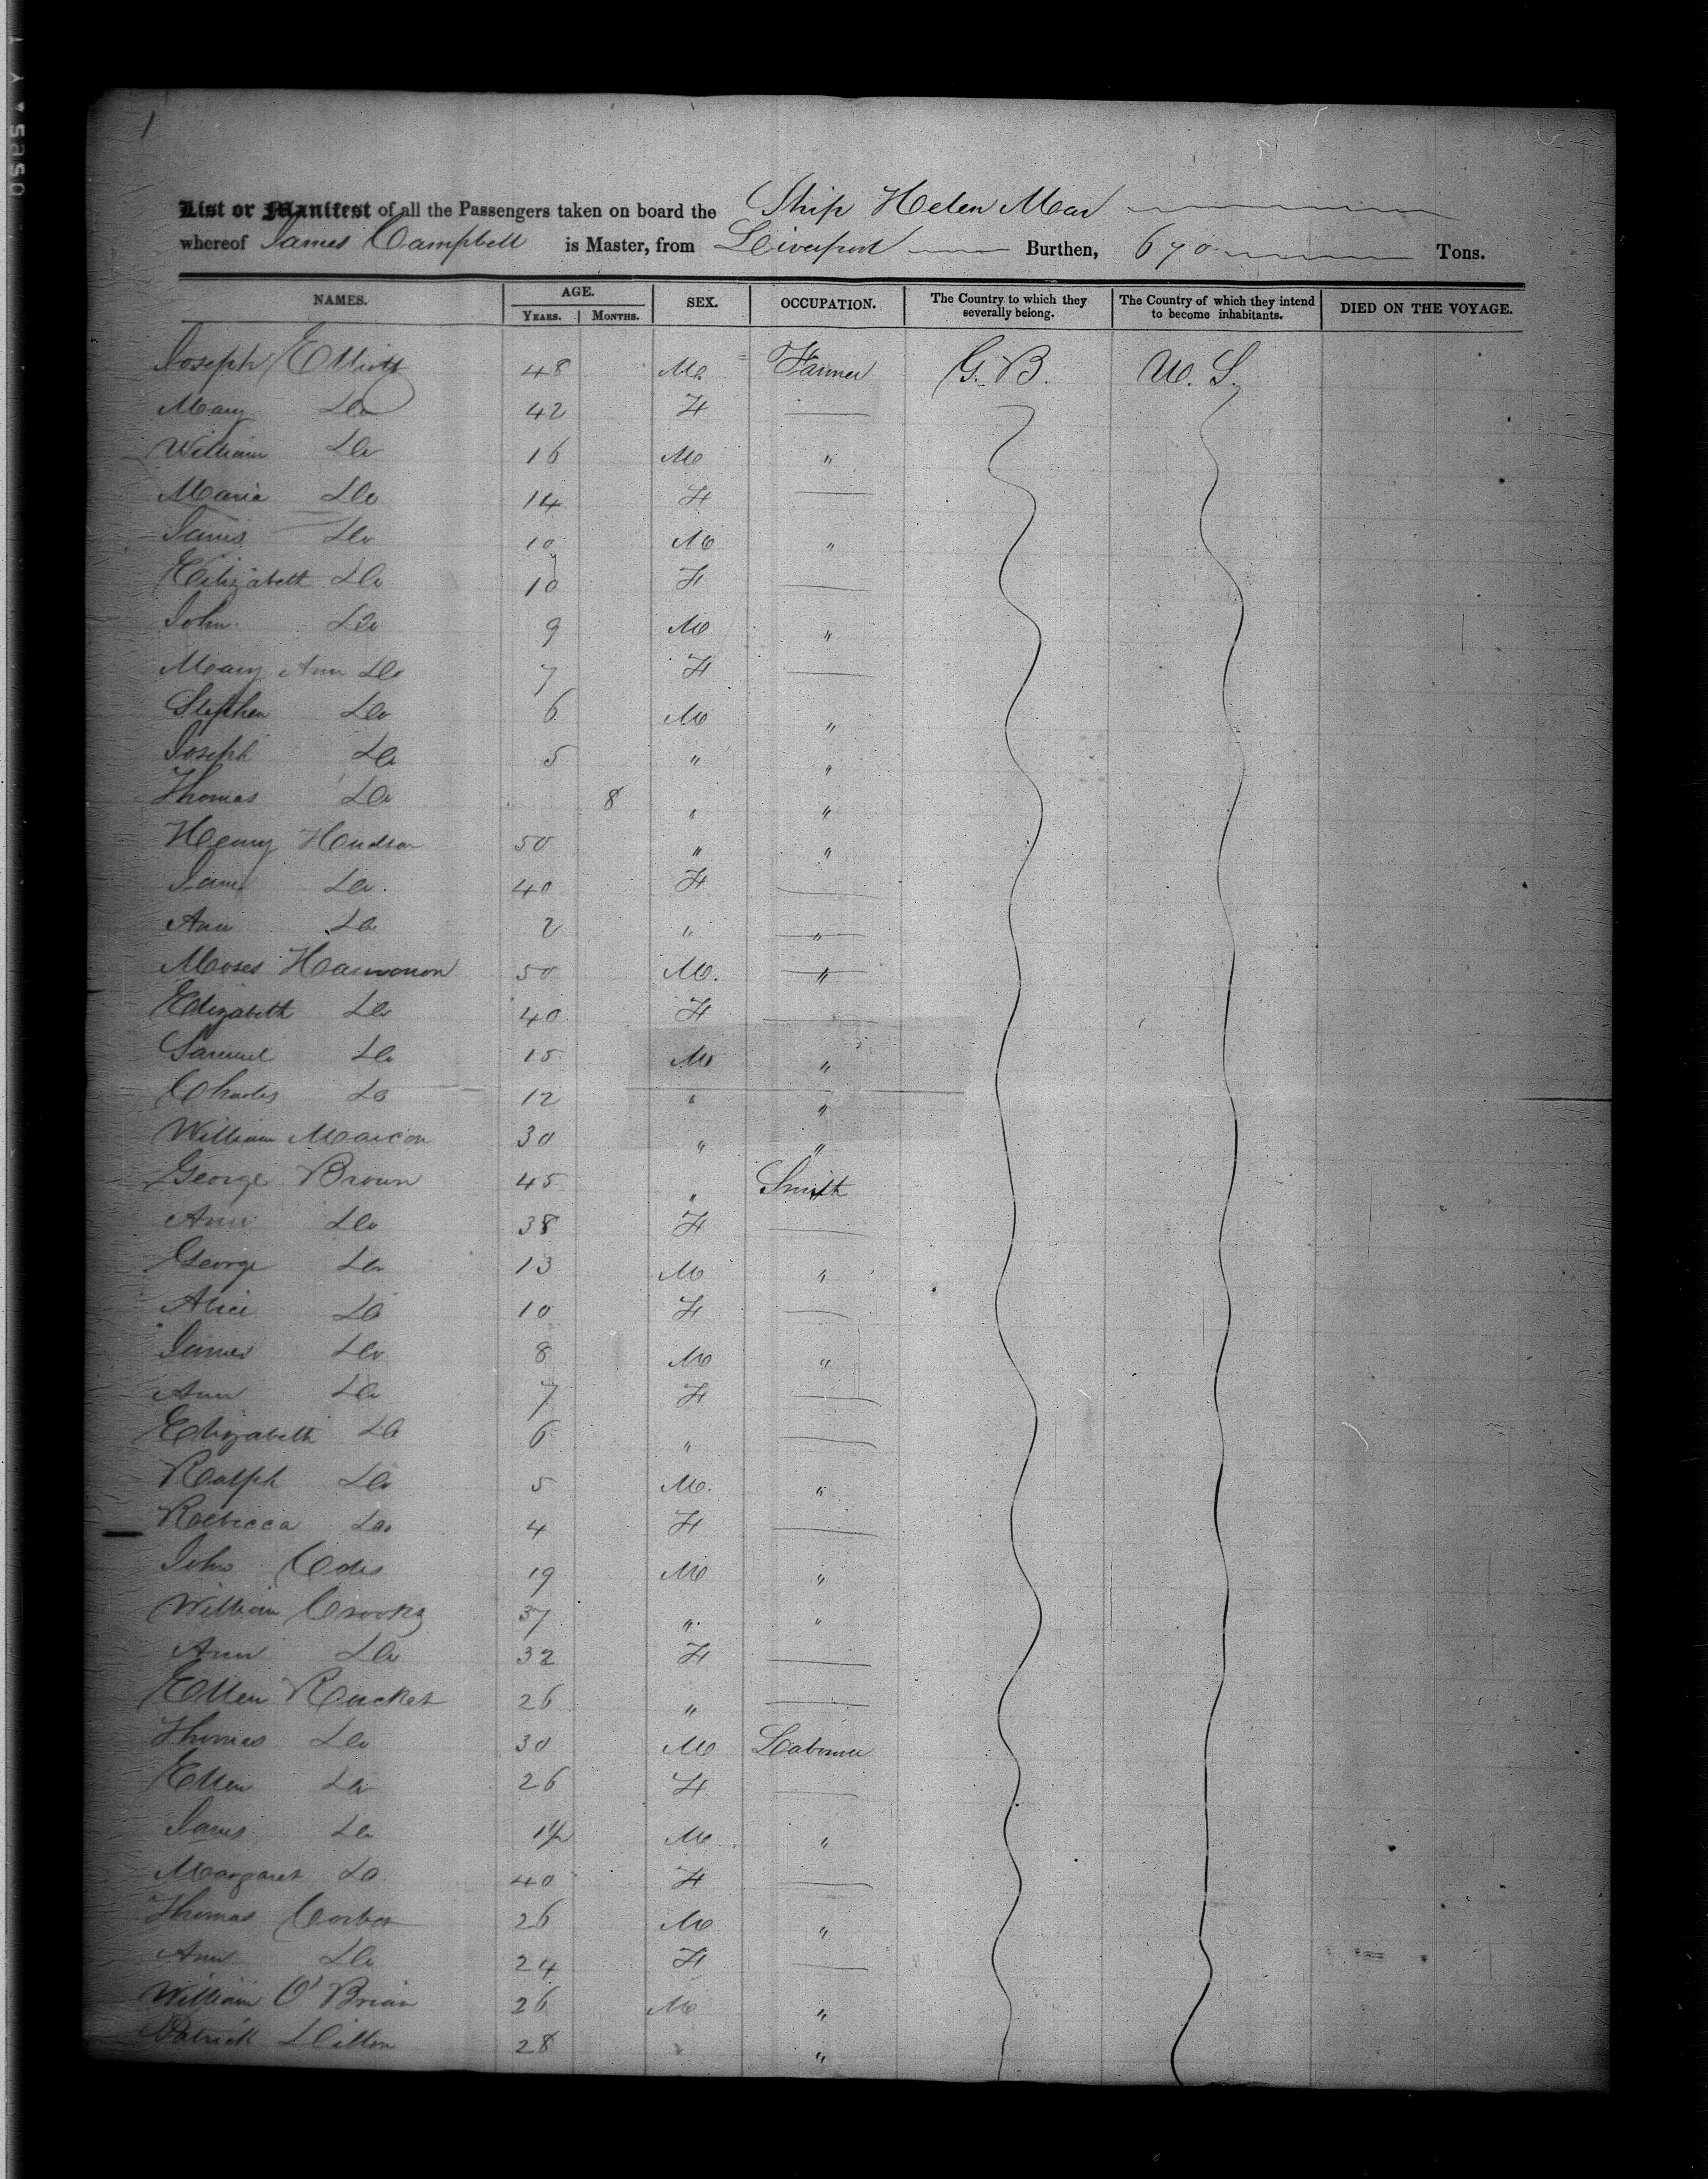 1
List or Manifest of all the Passengers taken on board the Ship Helen Mar
whereof James Campbell is Master, from Liverpool Burthen, 670 Tons.
NAMES. AGE. SEX. OCCUPATION. The Country to which they severally belong. The Country of which they intend to become inhabitants. DIED ON THE VOYAGE.
YEARS. MONTHS.
Joseph Elliott 48 M Farmer G. B. U. S.
Mary Do 42 F
William Do 16 M "
Maria Do 14 F
James Do 10 M "
Elizabeth Do 10 F
John Do 9 M "
Mary Ann Do 7 F
Stephen Do 6 M "
Joseph Do 5 " "
Thomas Do 8 " "
Henry Hudson 50 " "
Jane Do 40 F
Ann Do 2 " "
Moses 50 M. "
Elizabeth Do 40 F
Samuel Do 15 M "
Charles Do 12 " "
William 30 " "
George Brown 45 " Smith
Ann Do 38 F
George Do 13 M "
Alice Do 10 F
James Do 8 M "
Ann Do 7 F
Elizabeth Do 6 "
Ralph Do 5 M. "
Rebecca Do 4 F
John 19 M "
William Crooks 37 " "
Ann Do 32 F
Ellen Rucket 26 "
Thomas Do 30 M Labourer
Ellen Do 26 F
James Do 1½ M "
Margaret Do 40 F
Thomas 26 M "
Ann Do 24 F
William O'Brian 26 M "
Patrick Dillon 28 "